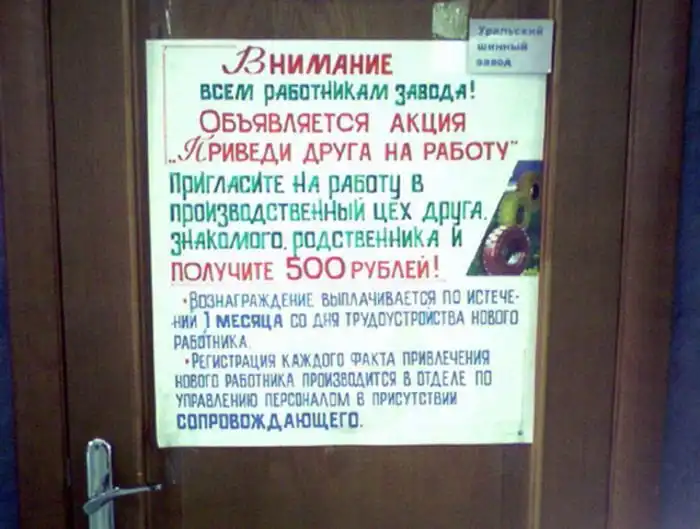 Уральский
шинный
завод
ВНИМАНИЕ
ВСЕМ РАБОТНИКАМ ЗАВОДА!
ОБЪЯВЛЯЕТСЯ АКЦИЯ
„ПРИВЕДИ ДРУГА НА РАБОТУ"
ПРИГЛАСИТЕ НА РАБОТУ В
ПРОИЗВОДСТВЕННЫЙ ЦЕХ ДРУГА,
ЗНАКОМОГО, РОДСТВЕННИКА И
ПОЛУЧИТЕ 500 РУБЛЕЙ!
• ВОЗНАГРАЖДЕНИЕ ВЫПЛАЧИВАЕТСЯ ПО ИСТЕЧЕ-
НИИ 1 МЕСЯЦА СО ДНЯ ТРУДОУСТРОЙСТВА НОВОГО
РАБОТНИКА.
• РЕГИСТРАЦИЯ КАЖДОГО ФАКТА ПРИВЛЕЧЕНИЯ
НОВОГО РАБОТНИКА ПРОИЗВОДИТСЯ В ОТДЕЛЕ ПО
УПРАВЛЕНИЮ ПЕРСОНАЛОМ В ПРИСУТСТВИИ
СОПРОВОЖДАЮЩЕГО.